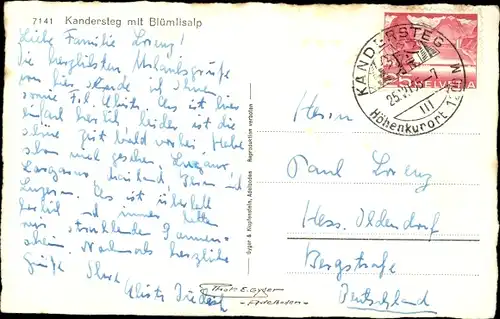 7141 Kandersteg mit Blümlisalp
Liebe Familie Lorenz!
Die herzlichsten Urlaubsgrüße
von hier sende ich Ihnen
sowie Frl. Es ist hier
einfach herrlich leider ist die
schöne Zeit bald vorbei. Habe
schon viel gesehen. Lugano,
Locarno, Mailand, Bern und
Luzern. Es ist überall
herrlich und immer hatten
wir strahlenden Sonnen-
schein. Nochmals herzliche
Grüße
Gyger & Klopfenstein, Adelboden Reproduction verboten
KANDERSTEG
Höhenkurort
HELVETIA
Herrn
Paul Lorenz
Hess. Oldendorf
Bergstraße
Deutschland
Photo E. Gyger
- Adelboden -